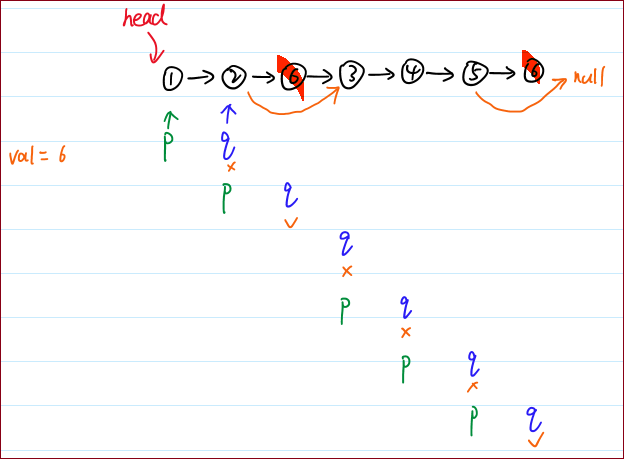 head
1 → 2 → 6 → 3 → 4 → 5 → 6 null
p q
val = 6
×
p q
✓
q
×
p q
×
p q
×
p q
✓